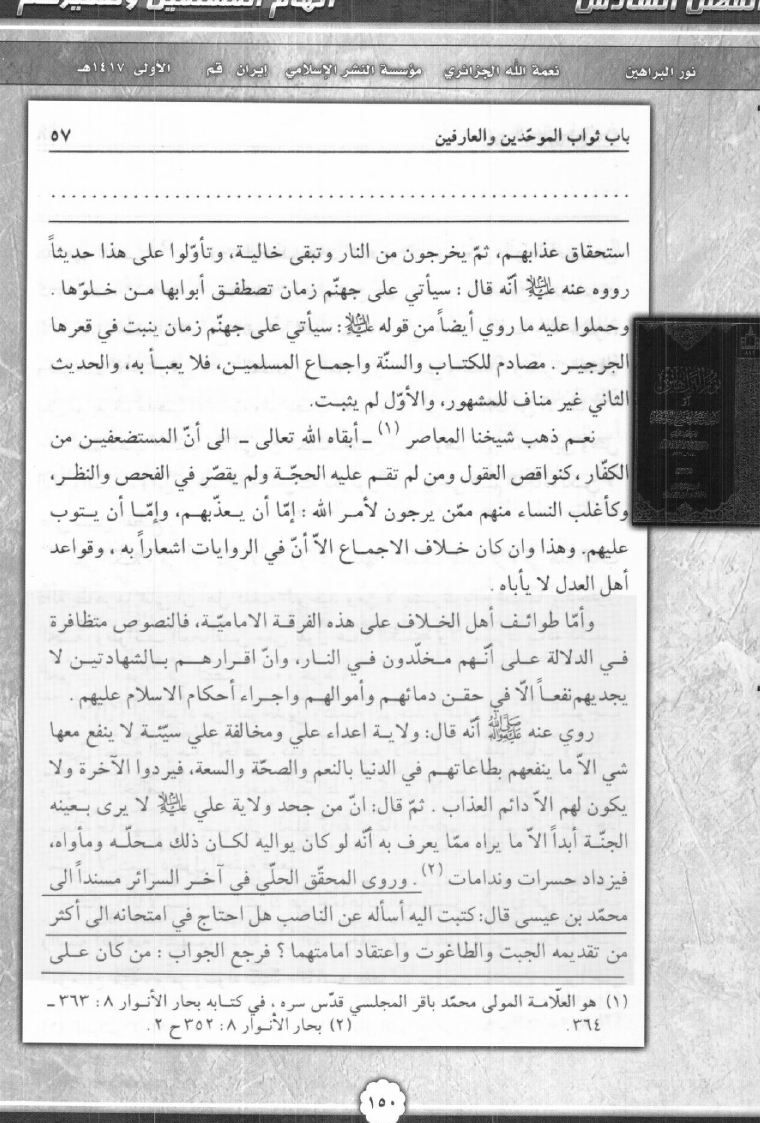 الفصل السادس
اتهام المسلمين وتكفيرهم
نور البراهين نعمة الله الجزائري مؤسسة النشر الإسلامي إيران قم الأولى ١٤١٧هـ
باب ثواب الموحّدين والعارفين ٥٧
استحقاق عذابهـم، ثمّ يخرجون من النار وتبقى خاليـة، وتأوّلوا على هذا حديثاً
رووه عنه عليه السلام أنّه قال : سيأتي على جهنّم زمان تصطفـق أبوابها مـن خـلوّها .
وحملوا عليه ما روي أيضاً من قوله عليه السلام : سيأتي على جهنّم زمان ينبت في قعرها
الجرجيـر . مصادم للكتـاب والسنّة واجمـاع المسلميـن، فلا يعبـأ به، والحديث
الثاني غير مناف للمشهور، والأوّل لم يثبـت.
نعـم ذهب شيخنا المعاصر (١) ـ أبقاه الله تعالى ـ الى أنّ المستضعفيـن من
الكفّار ، كنواقص العقول ومن لم تقـم عليه الحجّـة ولم يقصّر في الفحص والنظـر،
وكأغلب النساء منهم ممّن يرجون لأمـر الله : إمّا أن يـعذّبهـم، وإمّـا أن يـتوب
عليهم. وهذا وان كان خـلاف الاجمـاع الاّ أنّ في الروايات اشعاراً به ، وقواعد
أهل العدل لا يأباه .
وأمّا طوائـف أهل الخـلاف على هذه الفرقـة الاماميّـة، فالنصوص متظافرة
فـي الدلالة عـلـى أنّـهم مـخلّدون فـي النـار، وانّ اقـرارهـم بـالشهادتيـن لا
يجديهم نفعـاً الاّ في حقـن دمائهـم وأموالهـم واجـراء أحكام الاسلام عليهم .
روي عنه صلى الله عليه وآله أنّه قال: ولايـة اعداء علي ومخالفة علي سيّئـة لا ينفع معها
شي الاّ ما ينفعهم بطاعاتهـم في الدنيا بالنعم والصحّة والسعة، فيردوا الآخرة ولا
يكون لهم الاّ دائم العذاب . ثمّ قال: انّ من جحد ولاية علي عليه السلام لا يرى بـعينه
الجنّـة أبداً الاّ ما يراه ممّا يعرف به أنّه لو كان يواليه لكـان ذلك مـحلّـه ومأواه،
فيزداد حسرات وندامات (٢) . وروى المحقّق الحلّي في آخـر السرائر مسنداً الى
محمّد بن عيسى قال: كتبت اليه أسأله عن الناصب هل احتاج في امتحانه الى أكثر
من تقديمه الجبت والطاغوت واعتقاد امامتهما ؟ فرجع الجواب : من كان عـلـى
(١) هو العلّامـة المولى محمّد باقر المجلسي قدّس سره ، في كتـابه بحار الأنـوار ٨: ٣٦٣ ـ
٣٦٤. (٢) بحار الأنـوار ٨: ٣٥٢ ح ٢ .
١٥٠